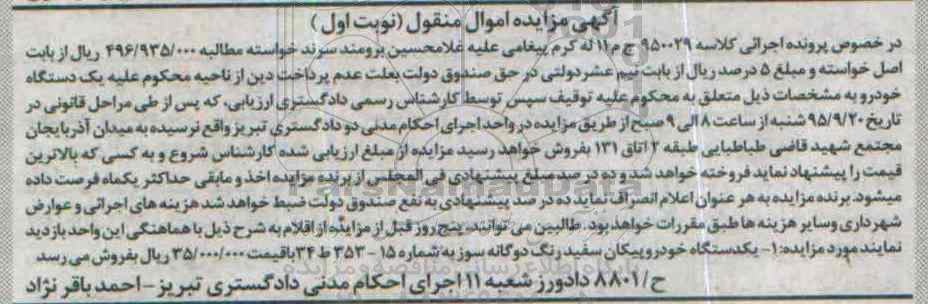 آگهی مزایده اموال منقول (نوبت اول)
در خصوص پرونده اجرائی کلاسه ۹۵۰۰۲۹ ج م۱۱ له کرم پیغامی علیه غلامحسین برومند سرند خواسته مطالبه ۴۹۶/۹۳۵/۰۰۰ ریال از بابت
اصل خواسته و مبلغ ۵ درصد ریال از بابت نیم عشر دولتی در حق صندوق دولت بعلت عدم پرداخت دین از ناحیه محکوم علیه یک دستگاه
خودرو به مشخصات ذیل متعلق به محکوم علیه توقیف سپس توسط کارشناس رسمی دادگستری ارزیابی، که پس از طی مراحل قانونی در
تاریخ ۹۵/۹/۲۰ شنبه از ساعت ۸ الی ۹ صبح از طریق مزایده در واحد اجرای احکام مدنی دو دادگستری تبریز واقع نرسیده به میدان آذربایجان
مجتمع شهید قاضی طباطبایی طبقه ۲ اتاق ۱۳۱ بفروش خواهد رسید مزایده از مبلغ ارزیابی شده کارشناس شروع و به کسی که بالاترین
قیمت را پیشنهاد نماید فروخته خواهد شد و ده در صد مبلغ پیشنهادی فی المجلس از برنده مزایده اخذ و مابقی حداکثر یکماه فرصت داده
میشود. برنده مزایده به هر عنوان اعلام انصراف نماید ده در صد پیشنهادی به نفع صندوق دولت ضبط خواهد شد هزینه های اجرائی و عوارض
شهرداری و سایر هزینه ها طبق مقررات خواهد بود. طالبین می توانند، پنج روز قبل از مزایده از اقلام به شرح ذیل با هماهنگی این واحد بازدید
نمایند مورد مزایده: ۱- یکدستگاه خودرو پیکان سفید رنگ دوگانه سوز به شماره ۱۵ - ۳۵۳ ط ۳۴ باقیمت ۳۵/۰۰۰/۰۰۰ ریال بفروش می رسد
ح/۸۸۰۱ دادورز شعبه ۱۱ اجرای احکام مدنی دادگستری تبریز - احمد باقر نژاد